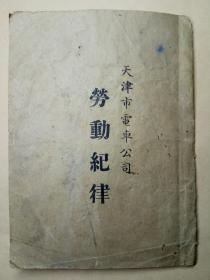 天津市電車公司
勞動紀律